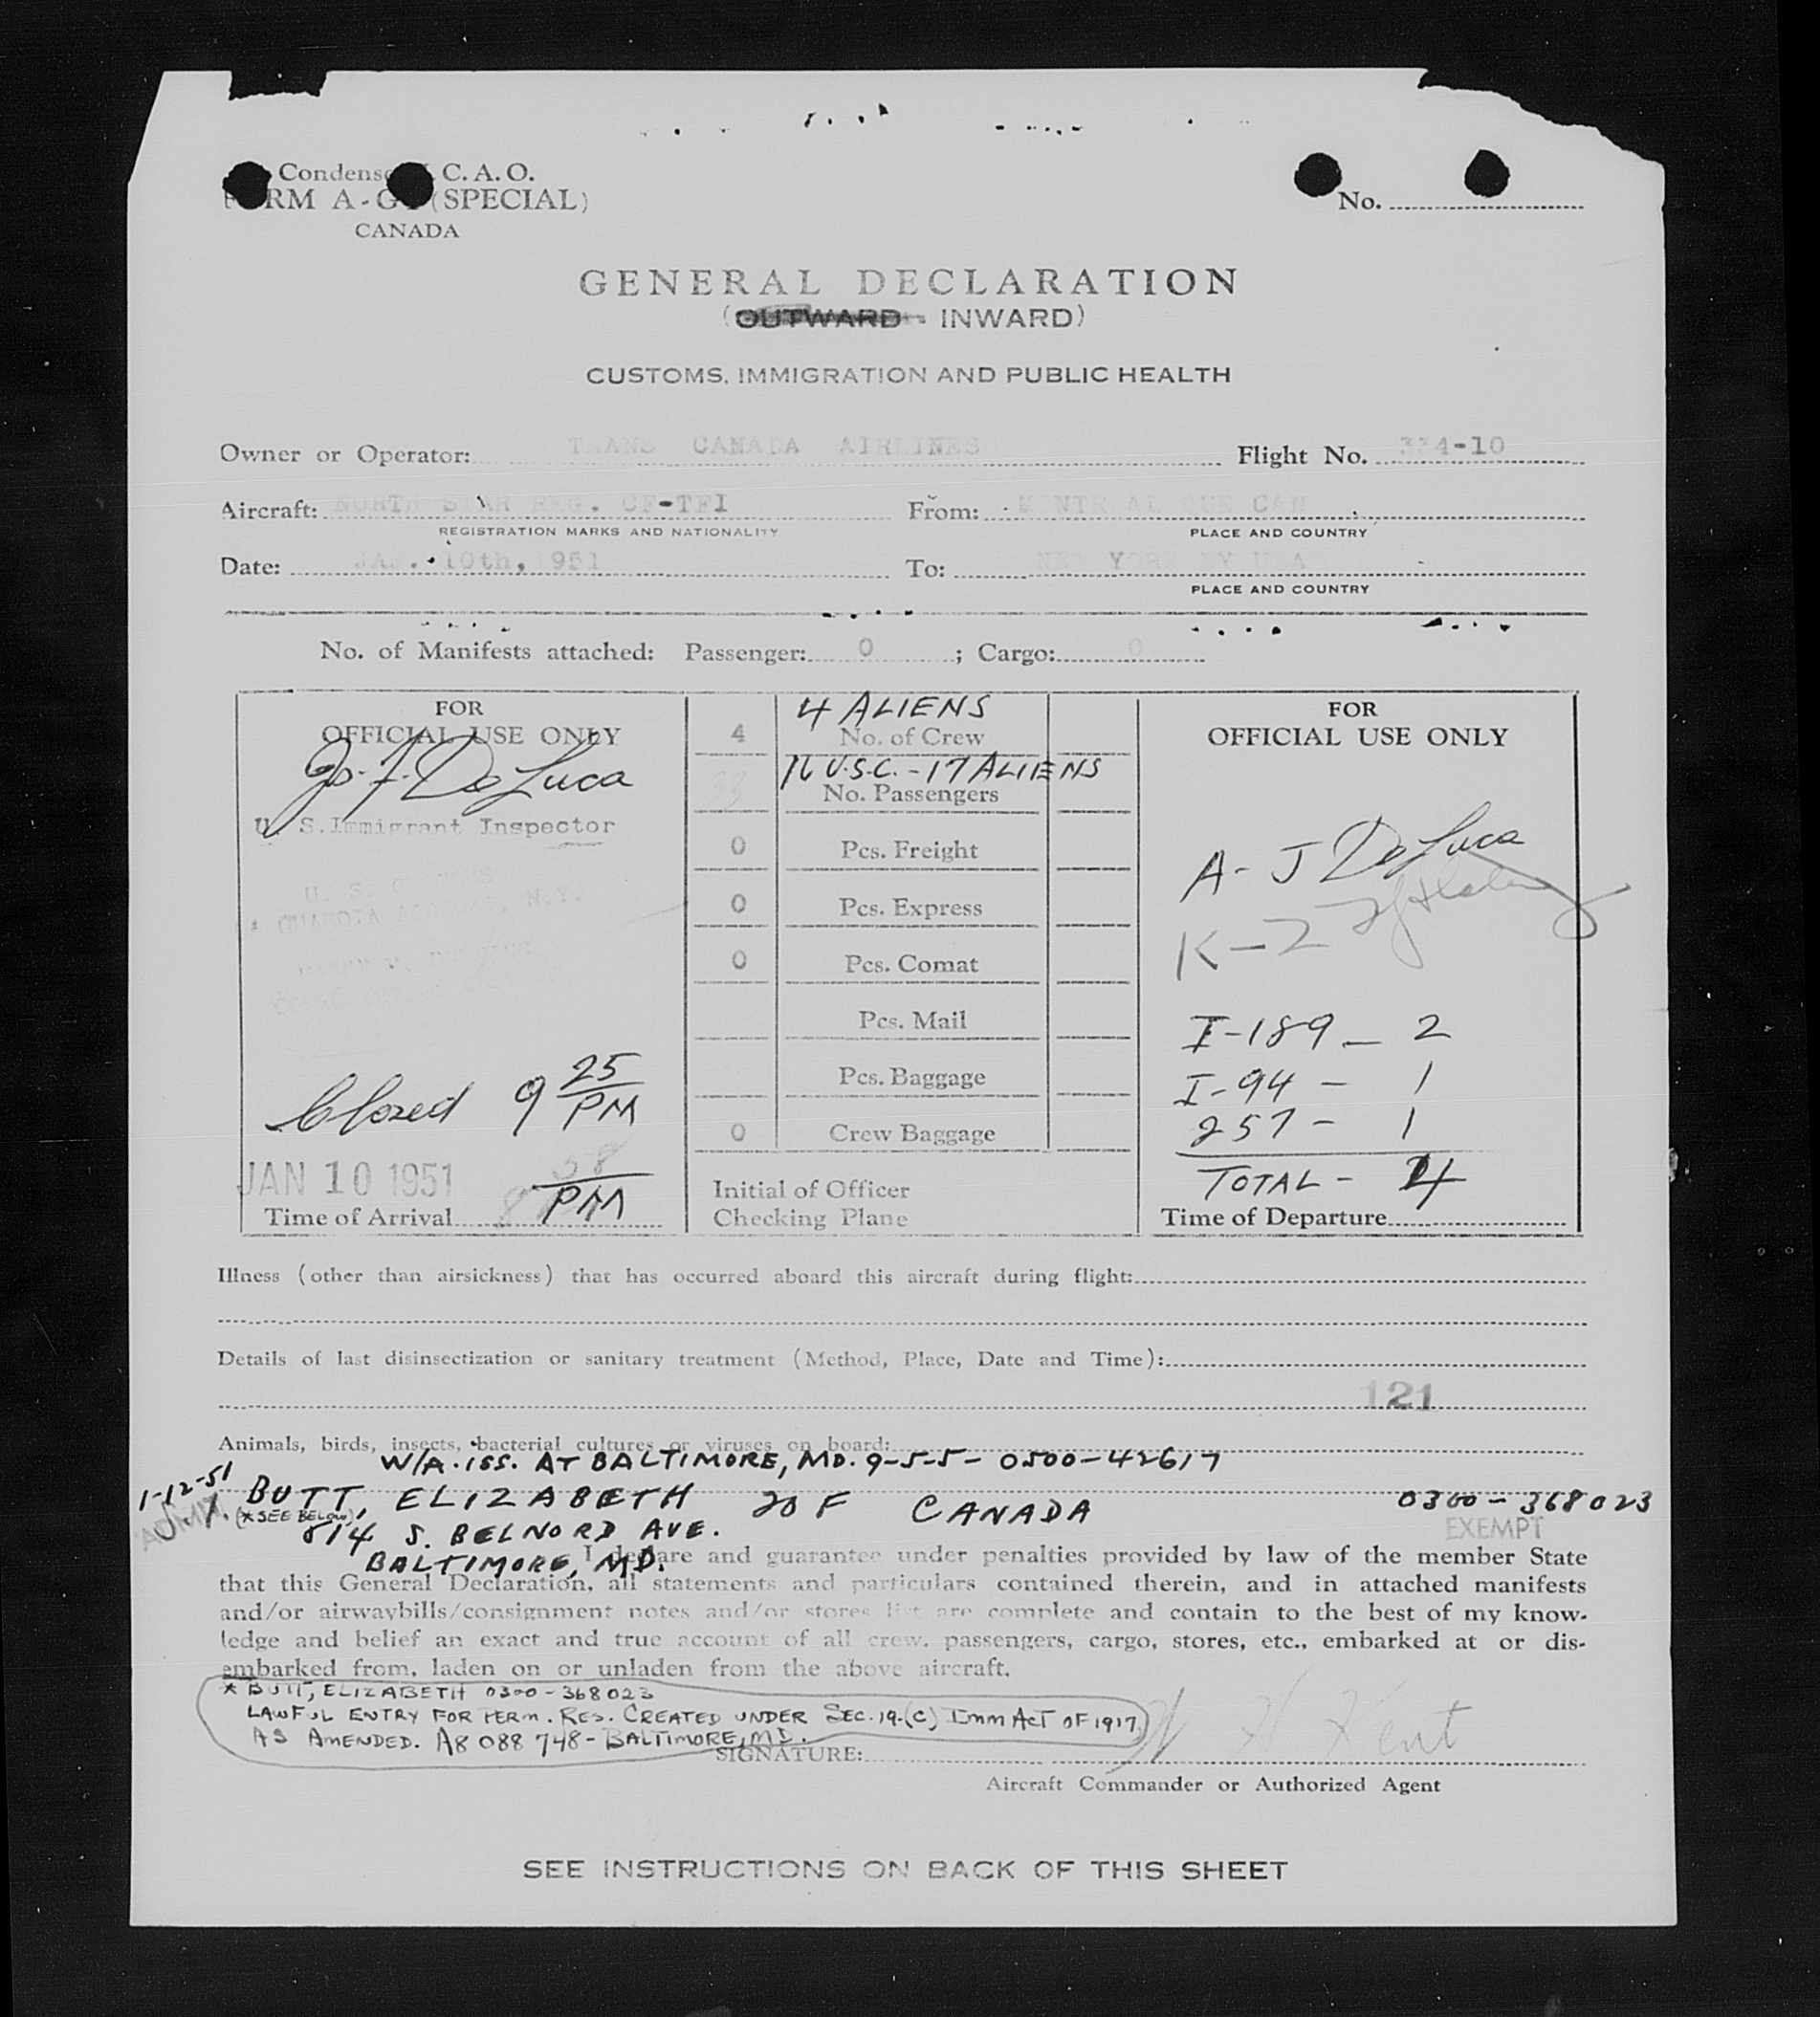 Condensed I. C. A. O.
FORM A-G1 (SPECIAL)
CANADA
No.
GENERAL DECLARATION
(OUTWARD - INWARD)
CUSTOMS, IMMIGRATION AND PUBLIC HEALTH
Owner or Operator: TRANS CANADA AIRLINES Flight No. 334-10
Aircraft: NORTH STAR REG. CF-TFI From: MONTREAL QUE CAN
REGISTRATION MARKS AND NATIONALITY PLACE AND COUNTRY
Date: JAN. 10th, 1951 To: NEW YORK NY USA
PLACE AND COUNTRY
No. of Manifests attached: Passenger: 0 ; Cargo: 0
FOR
OFFICIAL USE ONLY
Jo. F. De Luca
U. S. Immigrant Inspector
Closed 9 25 PM
JAN 10 1951
Time of Arrival 8 58 PM
4 ALIENS
4 No. of Crew
16 U.S.C. - 17 ALIENS
33 No. Passengers
0 Pcs. Freight
0 Pcs. Express
0 Pcs. Comat
Pcs. Mail
Pcs. Baggage
0 Crew Baggage
Initial of Officer
Checking Plane
FOR
OFFICIAL USE ONLY
A - J De Luca
K - 2
I-189 - 2
I-94 - 1
257 - 1
TOTAL - 4
Time of Departure
Illness (other than airsickness) that has occurred aboard this aircraft during flight:
Details of last disinsectization or sanitary treatment (Method, Place, Date and Time):
121
Animals, birds, insects, bacterial cultures or viruses on board:
W/A. ISS. AT BALTIMORE, MD. 9-5-5- 0500-42617
1-12-51 BUTT, ELIZABETH 20 F CANADA 0300-368023
(*SEE BELOW) 814 S. BELNORD AVE. EXEMPT
BALTIMORE, MD.
I declare and guarantee under penalties provided by law of the member State
that this General Declaration, all statements and particulars contained therein, and in attached manifests
and/or airwaybills/consignment notes and/or stores list are complete and contain to the best of my know-
ledge and belief an exact and true account of all crew, passengers, cargo, stores, etc., embarked at or dis-
embarked from, laden on or unladen from the above aircraft.
* BUTT, ELIZABETH 0300-368023
LAWFUL ENTRY FOR PERM. RES. CREATED UNDER SEC. 19.(C) IMM ACT OF 1917
AS AMENDED. A8 088 748 - BALTIMORE, MD.
SIGNATURE: W H Kent
Aircraft Commander or Authorized Agent
SEE INSTRUCTIONS ON BACK OF THIS SHEET